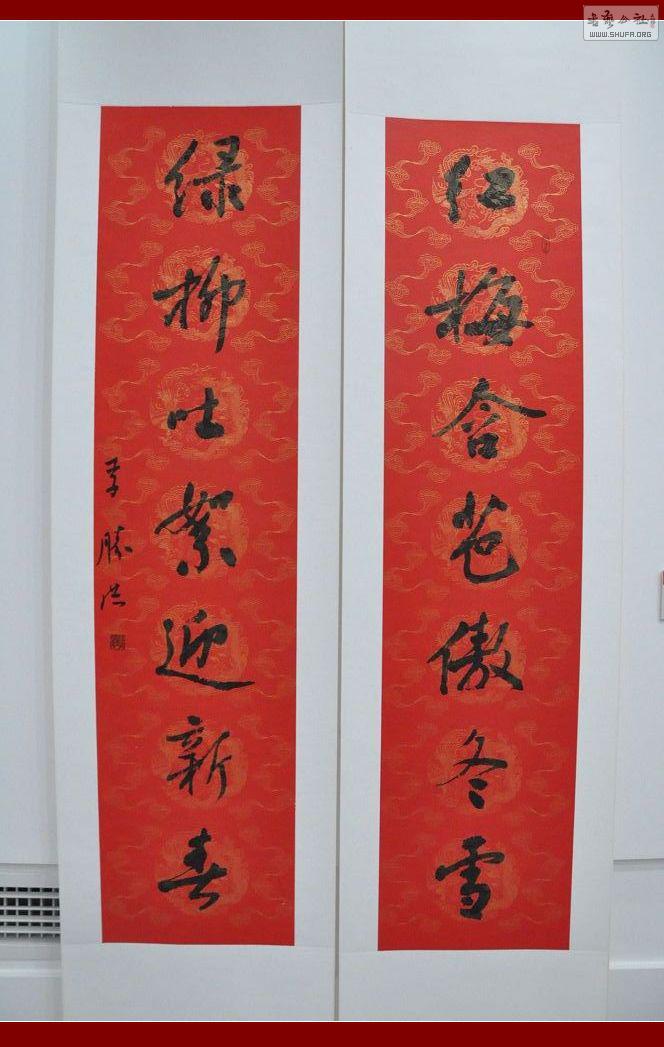 红梅含苞傲冬雪
绿柳吐絮迎新春
李胜洪
书艺公社
WWW.SHUFA.ORG